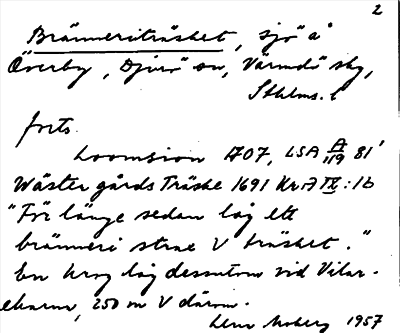 2
Bränneriträsket, sjö å
Överby, Djurö sn, Värmdö sky,
Sthlms. l
forts.
Loomsion 1707, LSA A/119 81'
Wäster gårds Träske 1691 KrA IX:1b
"För länge sedan låg ett
bränneri strax V träsket."
En krog låg dessutom vid Vilar-
ekarna, 250 m V därom.
Moberg 1957